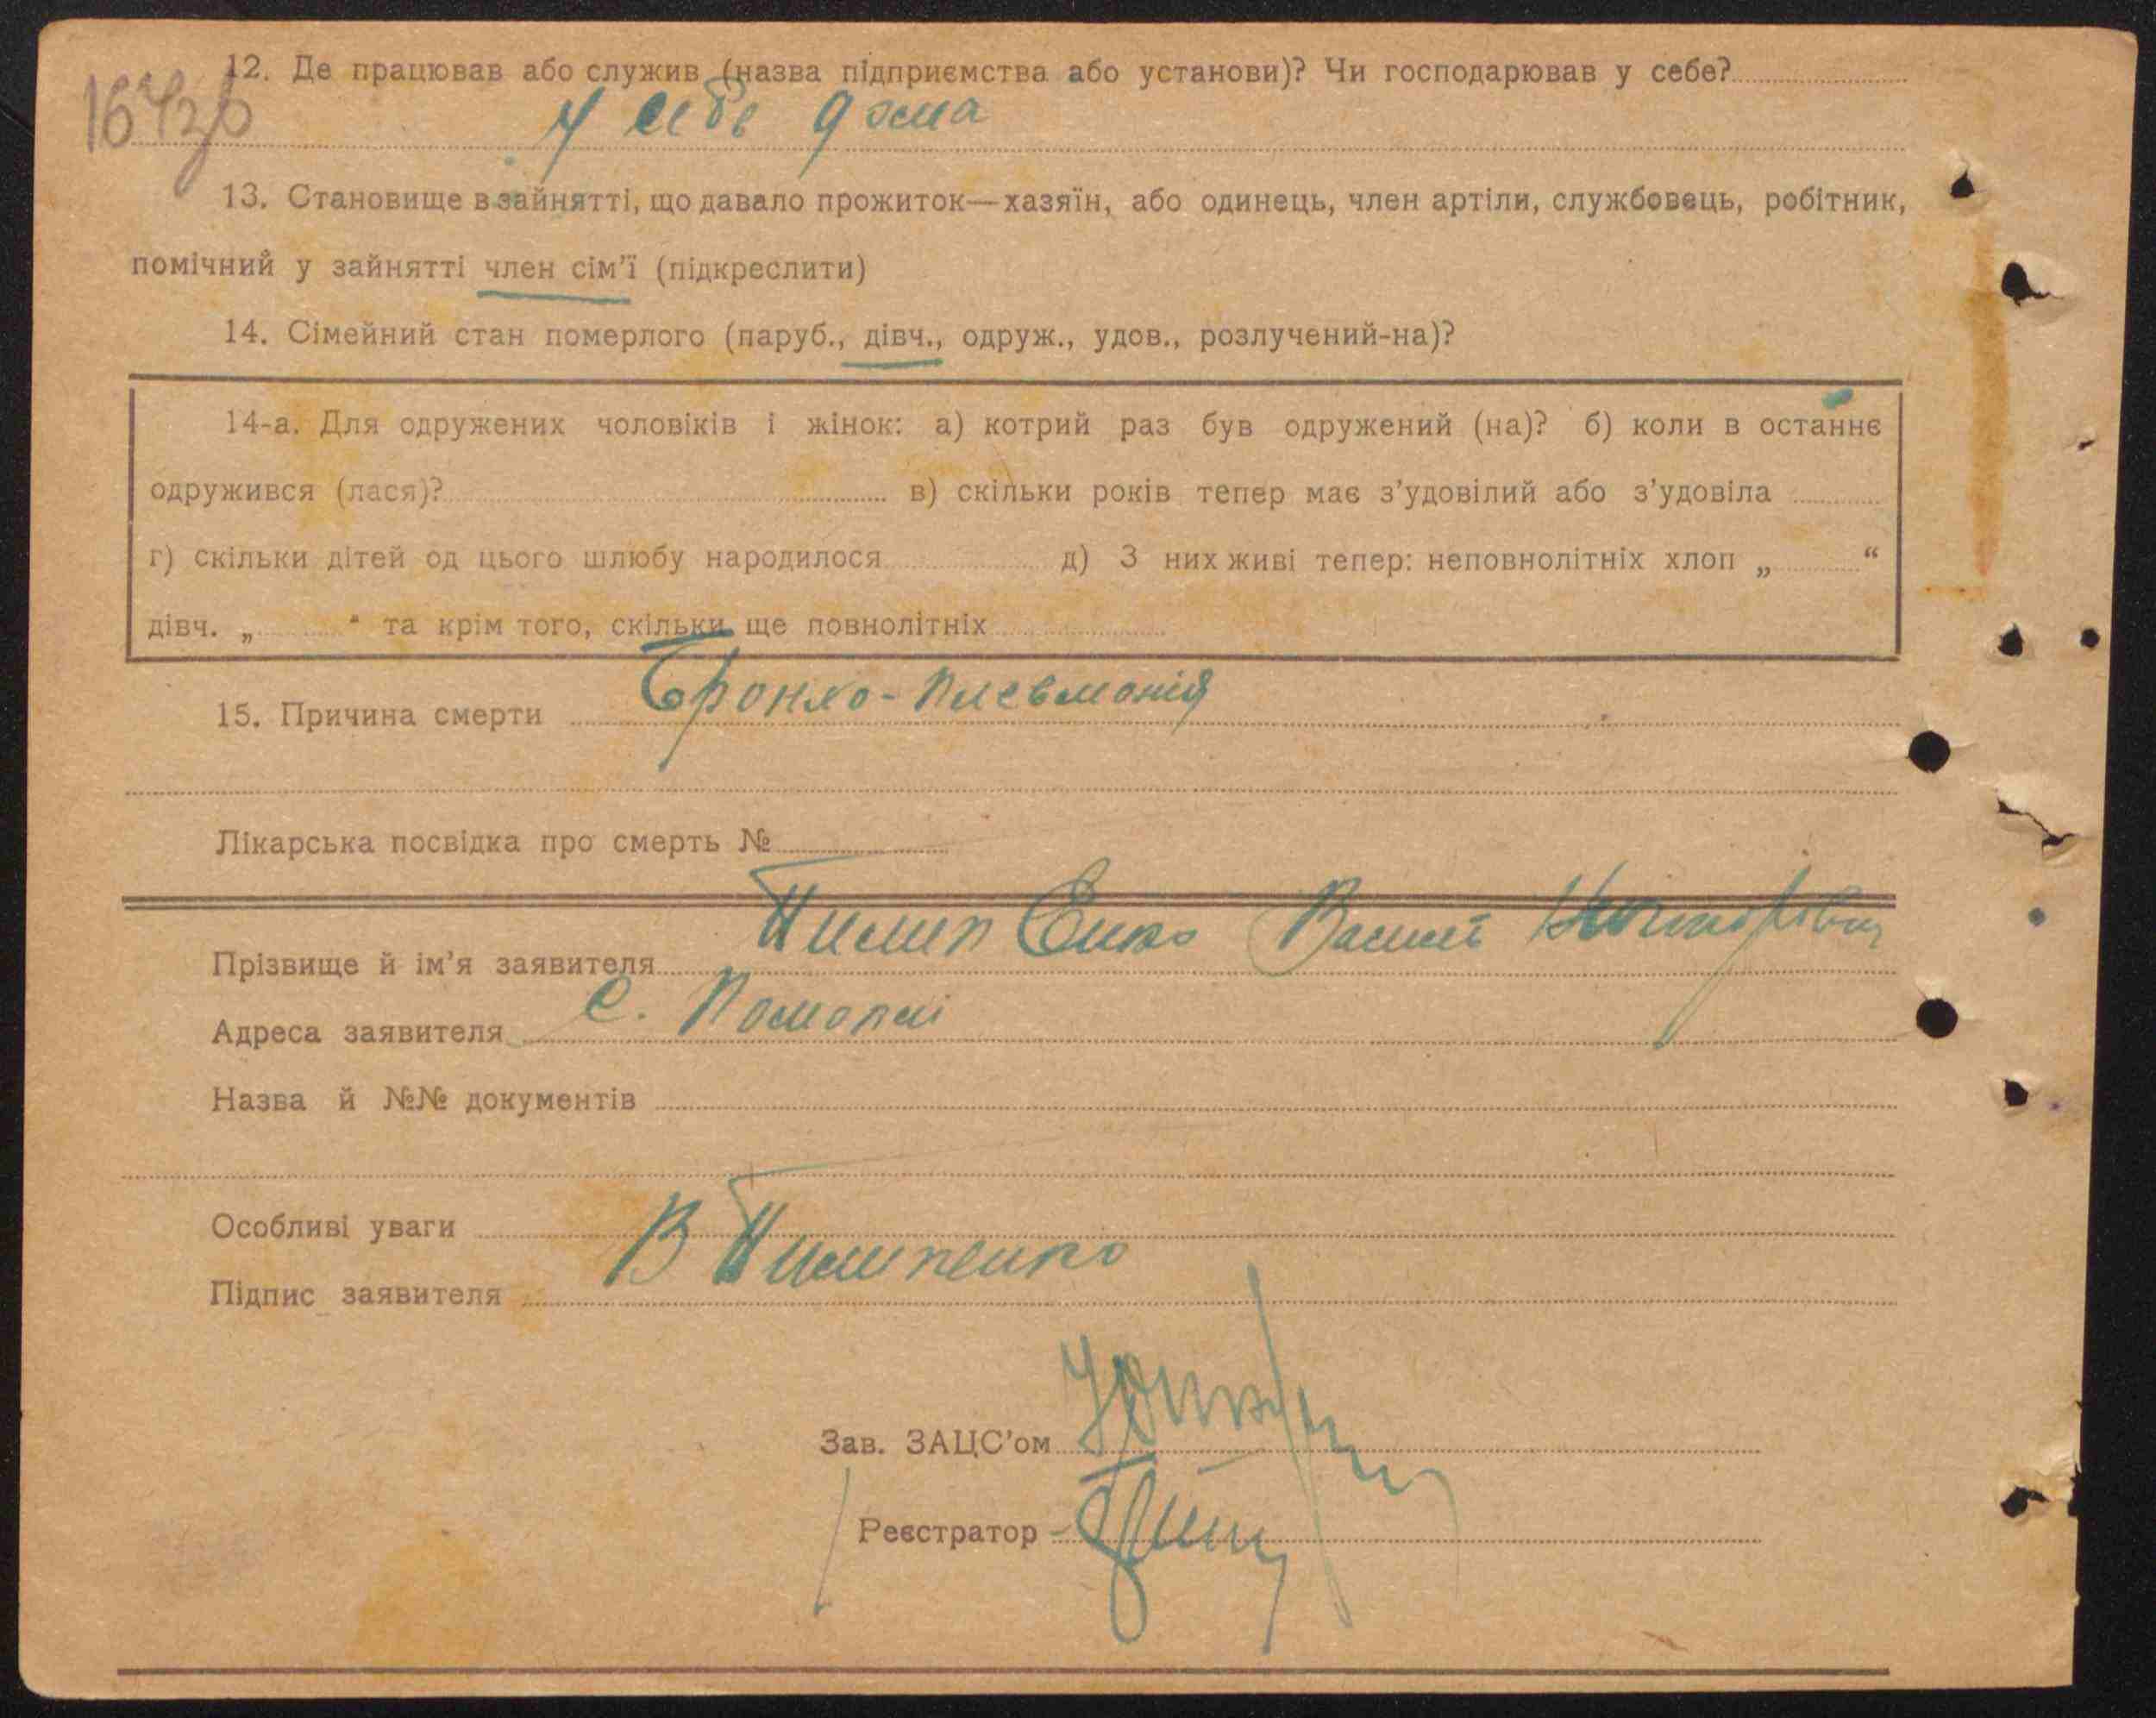 12. Де працював або служив (назва підприємства або установи)? Чи господарював у себе?
У себе дома
13. Становище в зайнятті, що давало прожиток—хазяїн, або одинець, член артіли, службовець, робітник,
помічний у зайнятті член сім'ї (підкреслити)
14. Сімейний стан померлого (паруб., дівч., одруж., удов., розлучений-на)?
14-а. Для одружених чоловіків і жінок: а) котрий раз був одружений (на)? б) коли в останнє
одружився (лася)? в) скільки років тепер має з'удовілий або з'удовіла
г) скільки дітей од цього шлюбу народилося д) З них живі тепер: неповнолітніх хлоп „ “
дівч. „ “ та крім того, скільки ще повнолітніх
15. Причина смерти Бронхо-пневмонія
Лікарська посвідка про смерть №
Прізвище й ім'я заявителя Пилипенко Василь
Адреса заявителя с. Помопні
Назва й №№ документів
Особливі уваги
Підпис заявителя В Пилипенко
Зав. ЗАЦС'ом
Реєстратор